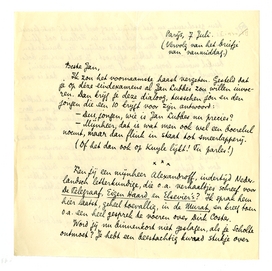 Parijs, 7 Juli.
(Vervolg van het briefje
van vanmiddag.)
Beste Jan,
Ik zou het voornaamste haast vergeten. Gesteld dat
je op deze eindexamens al Jan Lubbes zou willen invoe-
ren. Dan krijg je deze dialoog, tusschen jou en den
jongen die een 10 krijgt voor zijn antwoord:
— Zeg jongen, wie is Jan Lubbes nu precies?
— Mijnheer, dat is wat men ook wel een boerelul
noemt, maar dan flink in staat tot smeerlapperij.
(Of het dan ook op Kuyle lijkt! Nu parles!)
* * *
Ken jij een mijnheer Alexandroff, indertijd Neder-
landsch letterkundige, die o.a. verhaaltjes schreef voor
De Telegraaf, Eigen Haard en Elsevier's? Ik sprak hem
hier laatst, geheel toevallig, in de Murat, en kreeg toen
o.a. een heel gesprek te voeren over Dirk Coster.
Word jij nu binnenkort niet geslagen, als je Scholte
ontmoet? Je hebt een beestachtig kwaad stukje over